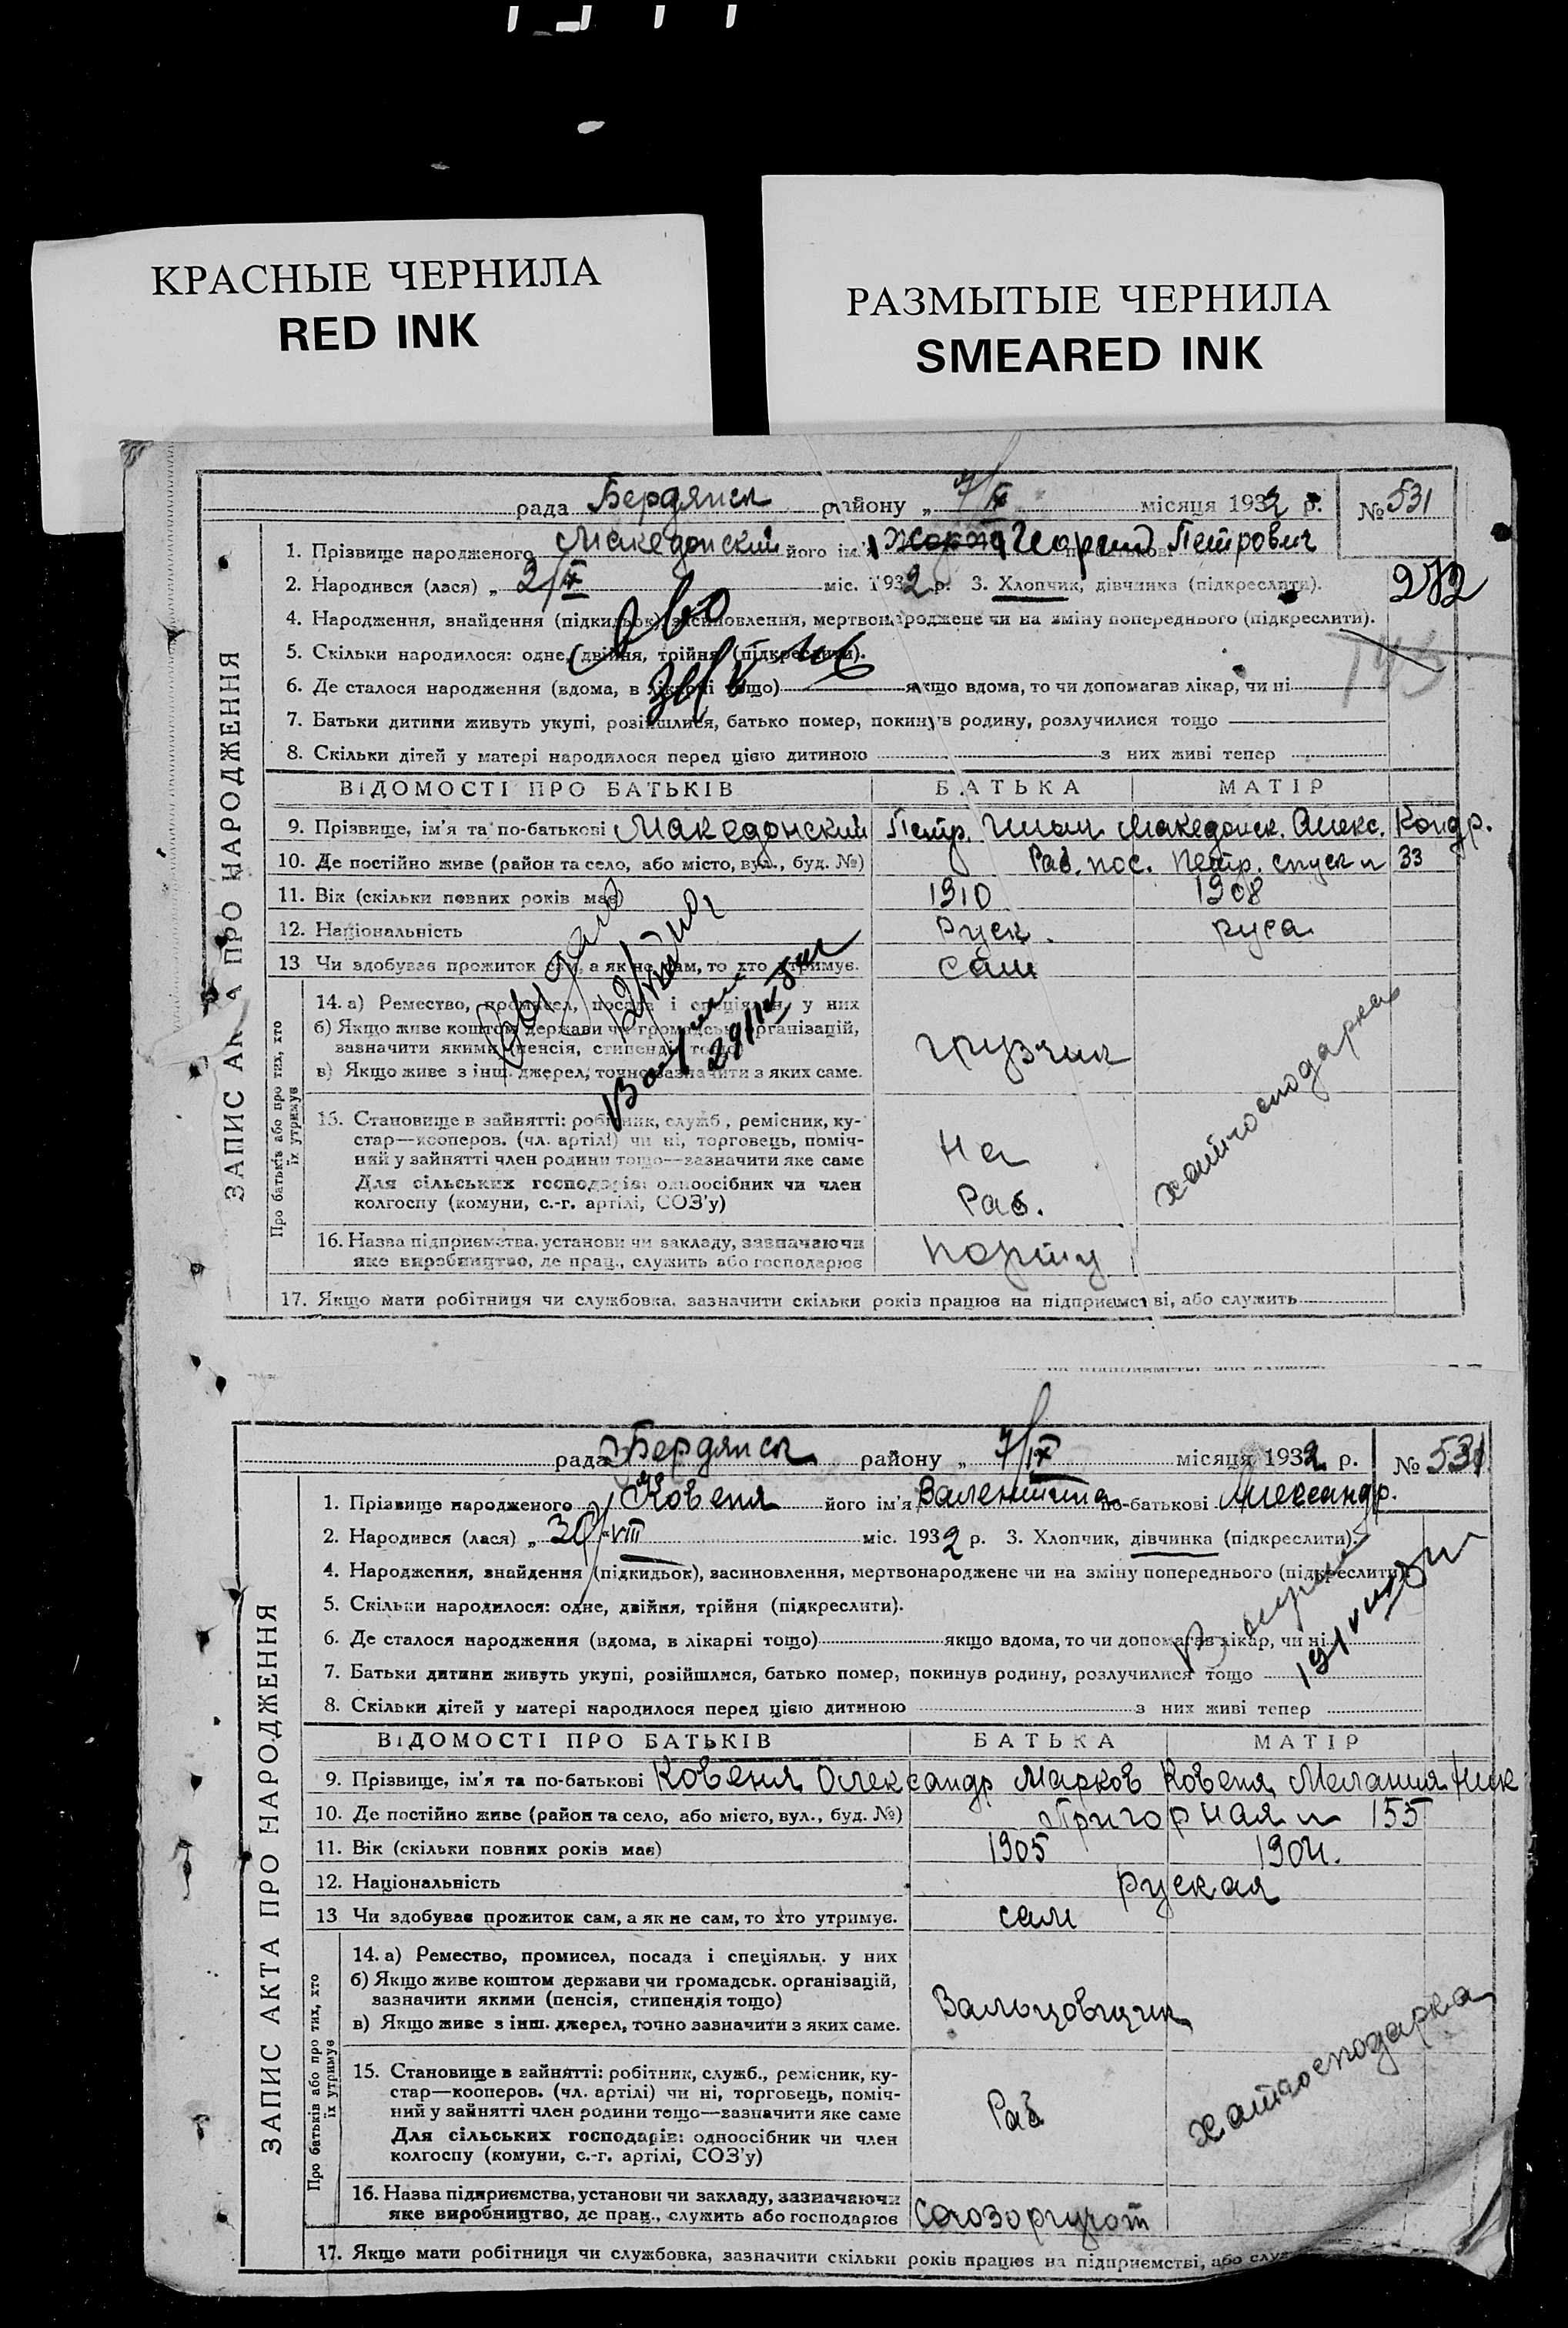 КРАСНЫЕ ЧЕРНИЛА
RED INK
РАЗМЫТЫЕ ЧЕРНИЛА
SMEARED INK
рада Бердянск району „ 7/IX місяця 1932 р. № 531
1. Прізвище народженого Македонский його ім'я Георгий Петрович
2. Народився (лася) „ 2/IX міс. 1932 р. 3. Хлопчик, дівчинка (підкреслити).
272
4. Народження, знайдення (підкидьок), засиновлення, мертвонароджене чи на зміну попереднього (підкреслити).
5. Скільки народилося: одне, двійня, трійня (підкреслити).
6. Де сталося народження (вдома, в лікарні тощо) якщо вдома, то чи допомагав лікар, чи ні
7. Батьки дитини живуть укупі, розійшлися, батько помер, покинув родину, розлучилися тощо
8. Скільки дітей у матері народилося перед цією дитиною з них живі тепер
ЗАПИС АКТА ПРО НАРОДЖЕННЯ
ВІДОМОСТІ ПРО БАТЬКІВ БАТЬКА МАТІР
9. Прізвище, ім'я та по-батькові Македонский Петр. Македонск. Алекс. Кондр.
10. Де постійно живе (район та село, або місто, вул., буд. №) Раб. пос. Петр. спуск 33
11. Вік (скільки повних років має) 1910 1908
12. Національність Руск. руса
13 Чи здобуває прожиток сам, а як не сам, то хто утримує. Сам
Про батьків або про тих, хто їх утримує
14. а) Ремество, промисел, посада і спеціяльн. у них
б) Якщо живе коштом держави чи громадськ. організацій,
зазначити якими (пенсія, стипендія тощо)
в) Якщо живе з інш. джерел, точно зазначити з яких саме.
грузчик
хатгосподарка
15. Становище в зайнятті: робітник, служб., ремісник, ку-
стар—кооперов. (чл. артілі) чи ні, торговець, поміч-
ний у зайнятті член родини тощо—зазначити яке саме
Для сільських господарів: одноосібник чи член
колгоспу (комуни, с.-г. артілі, СОЗ'у)
На
Раб.
16. Назва підприємства, установи чи закладу, зазначаючи
яке виробництво, де прац., служить або господарює
порту
17. Якщо мати робітниця чи службовка, зазначити скільки років працює на підприємстві, або служить
рада Бердянск району „ 7/IX місяця 1932 р. № 531
1. Прізвище народженого Ковеня його ім'я Валентина по-батькові Александр.
2. Народився (лася) „ 30/VIII міс. 1932 р. 3. Хлопчик, дівчинка (підкреслити).
4. Народження, знайдення (підкидьок), засиновлення, мертвонароджене чи на зміну попереднього (підкреслити).
5. Скільки народилося: одне, двійня, трійня (підкреслити).
6. Де сталося народження (вдома, в лікарні тощо) якщо вдома, то чи допомагав лікар, чи ні
7. Батьки дитини живуть укупі, розійшлися, батько помер, покинув родину, розлучилися тощо
8. Скільки дітей у матері народилося перед цією дитиною з них живі тепер
ЗАПИС АКТА ПРО НАРОДЖЕННЯ
ВІДОМОСТІ ПРО БАТЬКІВ БАТЬКА МАТІР
9. Прізвище, ім'я та по-батькові Ковеня Олександр Марков Ковеня Мелания Ник
10. Де постійно живе (район та село, або місто, вул., буд. №) Пригорная 155
11. Вік (скільки повних років має) 1905 1904.
12. Національність руская
13 Чи здобуває прожиток сам, а як не сам, то хто утримує. сам
Про батьків або про тих, хто їх утримує
14. а) Ремество, промисел, посада і спеціяльн. у них
б) Якщо живе коштом держави чи громадськ. організацій,
зазначити якими (пенсія, стипендія тощо)
в) Якщо живе з інш. джерел, точно зазначити з яких саме.
Вальцовщик
хатгосподарка
15. Становище в зайнятті: робітник, служб., ремісник, ку-
стар—кооперов. (чл. артілі) чи ні, торговець, поміч-
ний у зайнятті член родини тощо—зазначити яке саме
Для сільських господарів: одноосібник чи член
колгоспу (комуни, с.-г. артілі, СОЗ'у)
Раб
16. Назва підприємства, установи чи закладу, зазначаючи
яке виробництво, де прац., служить або господарює
Союзоргучот
17. Якщо мати робітниця чи службовка, зазначити скільки років працює на підприємстві, або служ